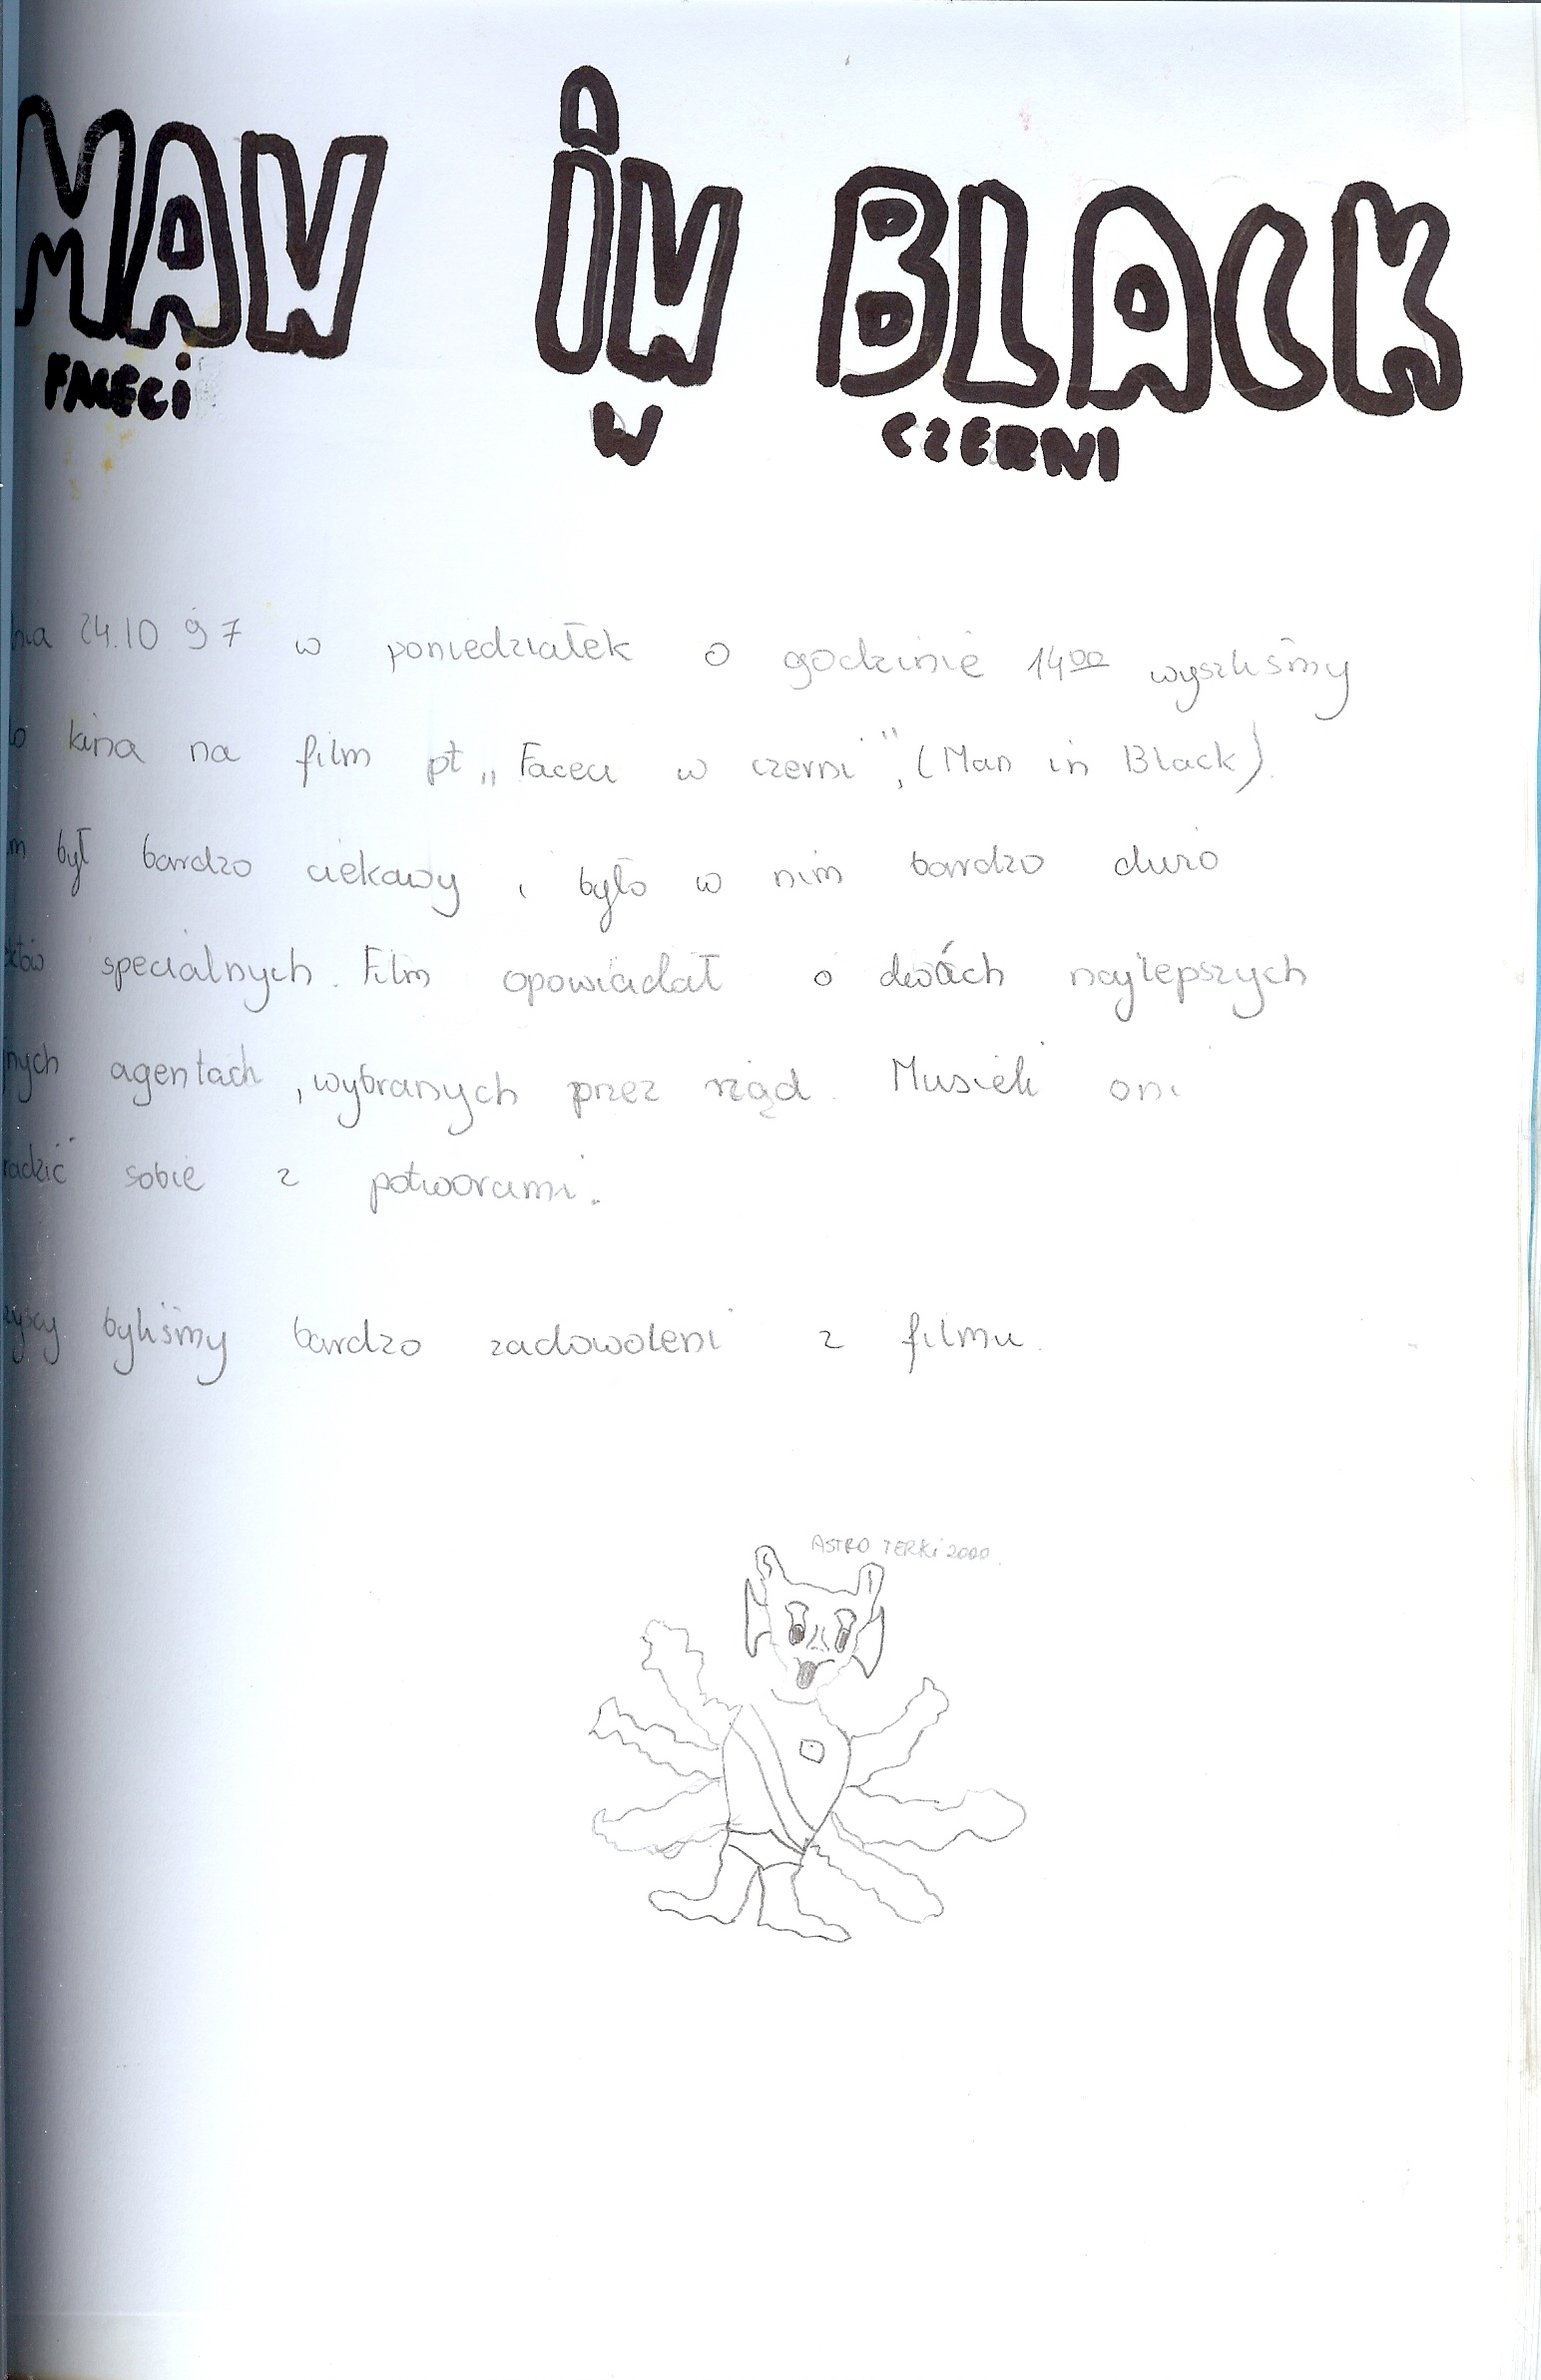 MAN in BLACK
FACECi W CZERNI
24.10 97 w poniedziałek o godzinie 14⁰⁰ wyszliśmy
kina na film pt „Faceci w czerni", (Man in Black).
był bardzo ciekawy i było w nim bardzo dużo
specialnych. Film opowiadał o dwóch najlepszych
agentach, wybranych przez rząd. Musieli oni
sobie z potworami.
byliśmy bardzo zadowoleni z filmu.
ASTRO TERKi 2000.